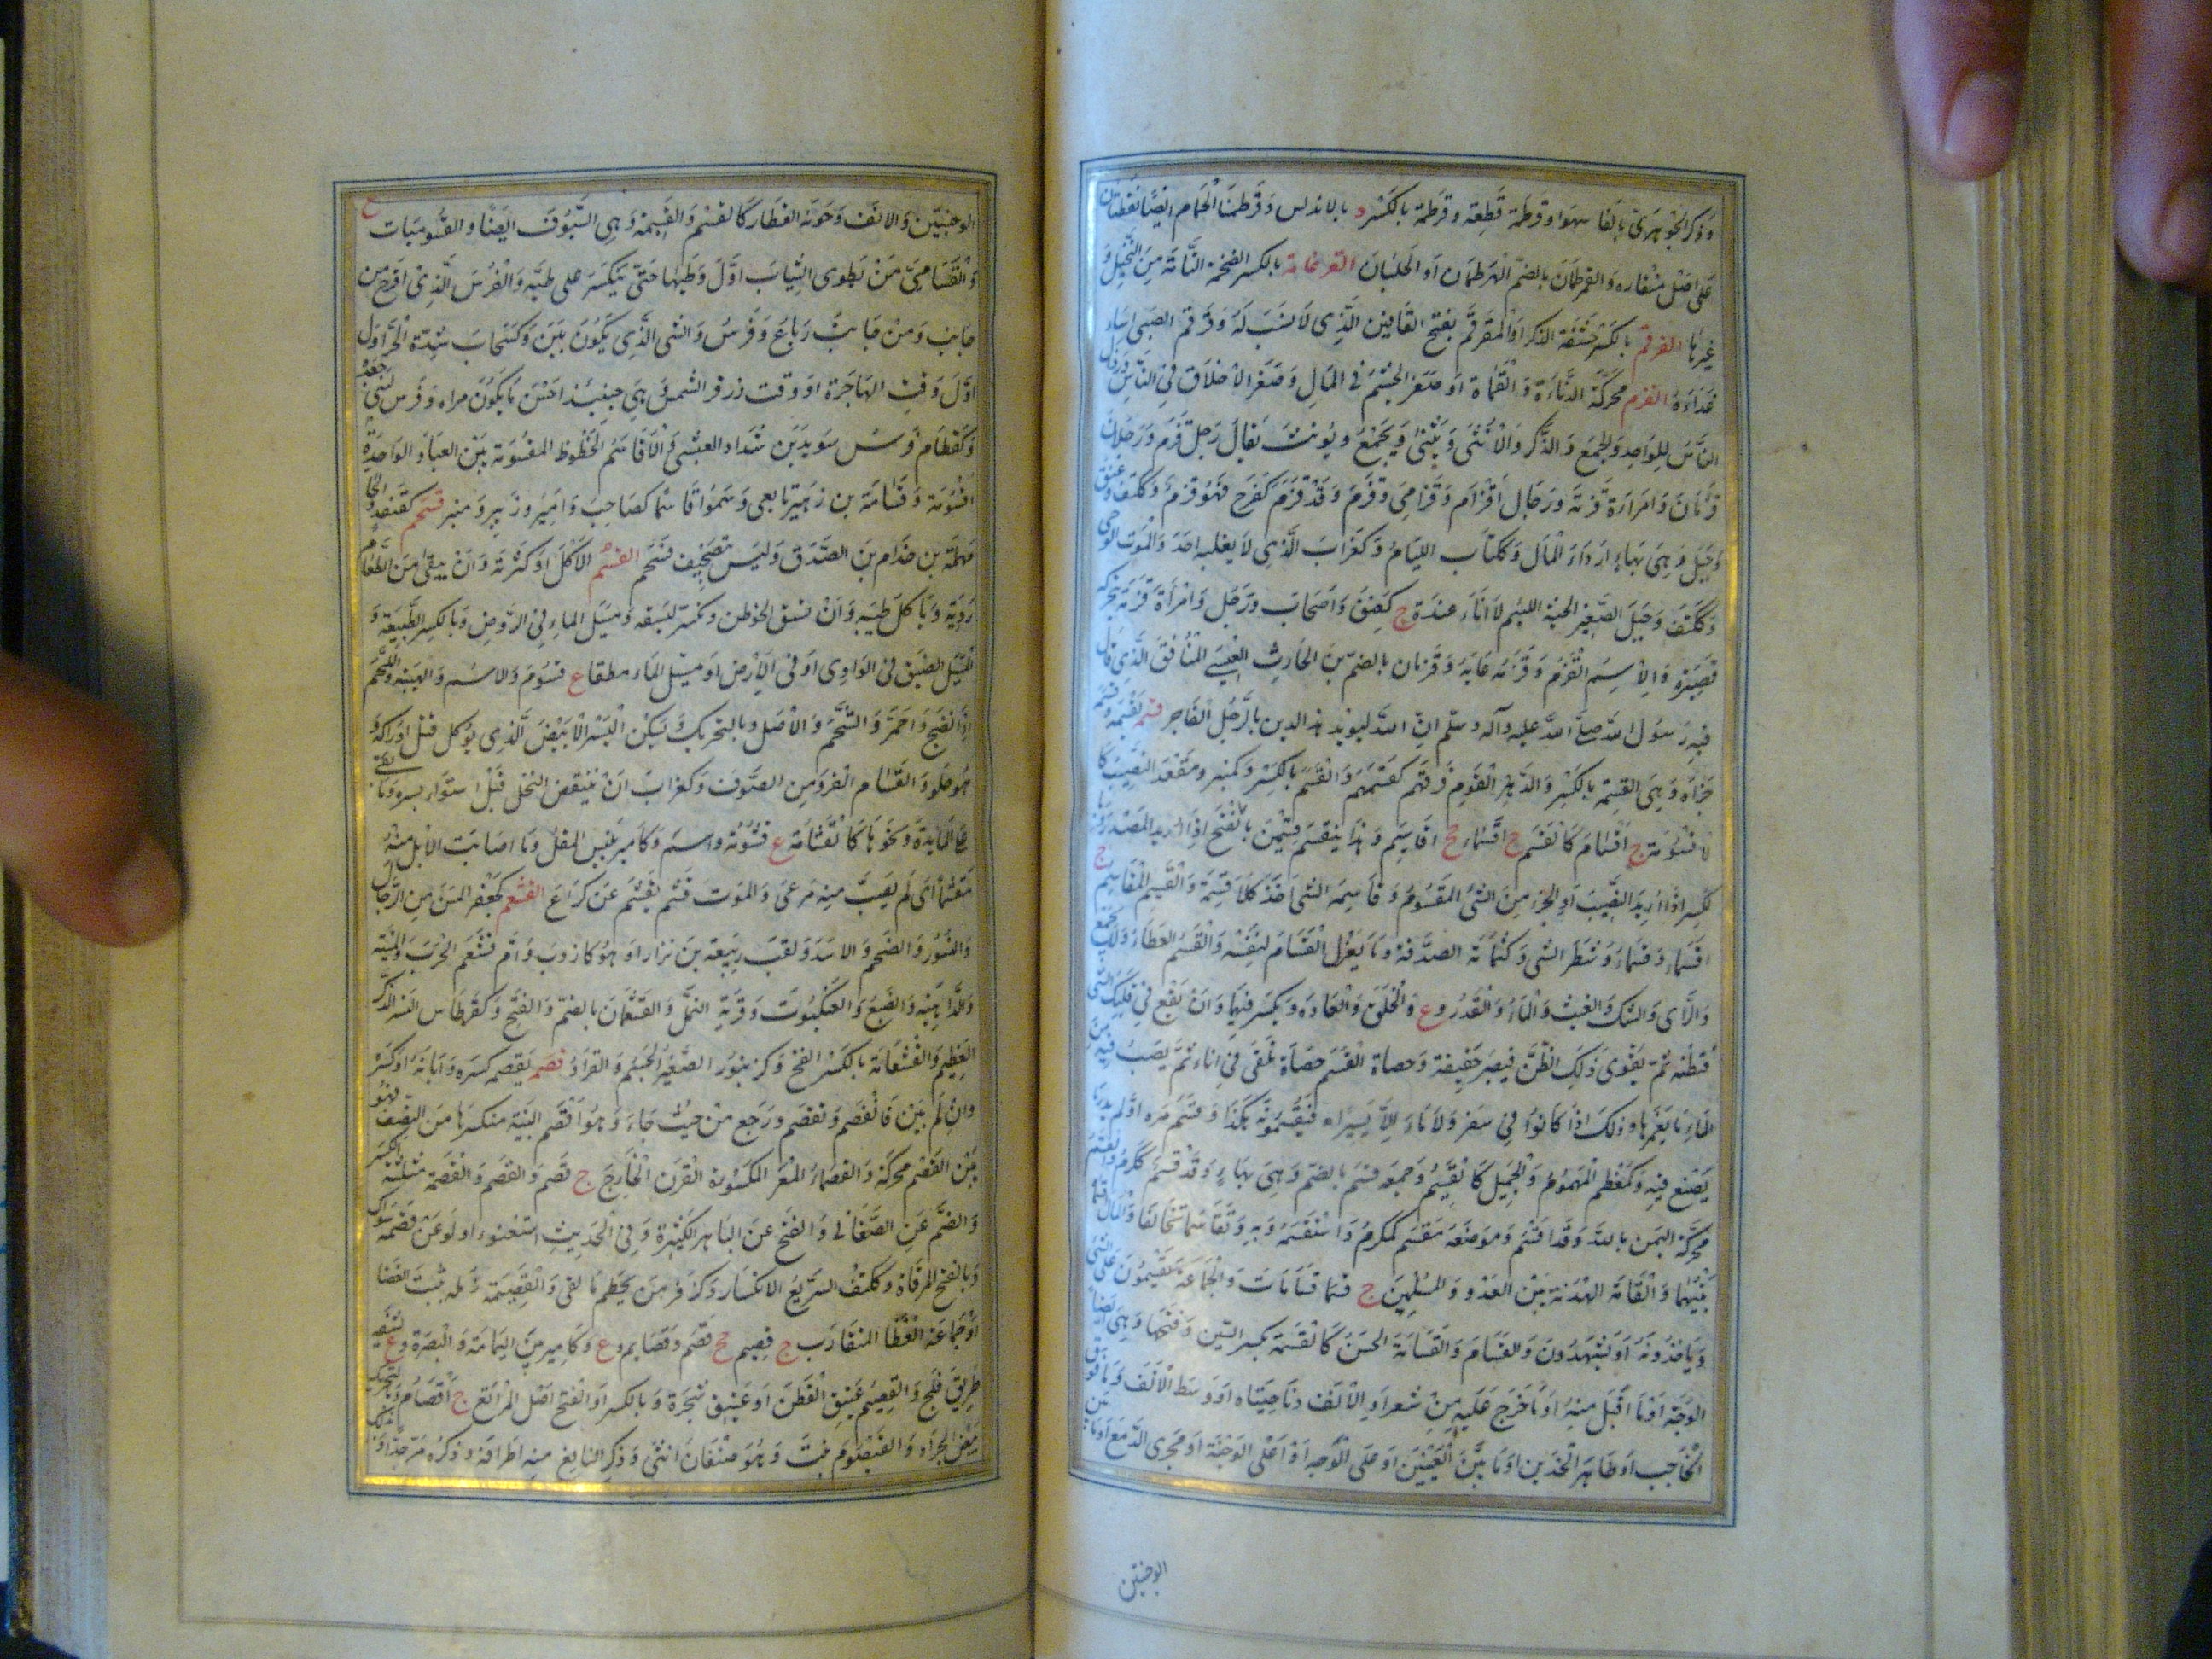 وذكر الجوهري بالفا سهوا وقرطمة قطعه وقرطمة بالكسر د بالاندلس وقرطمتا الحمام ايضا نقطتان
على اصل منقاره والقرطمان بالضم الهرطمان او الجلبان القرعامة بالكسر الضخمة التامة من النخيل و
غيرها القرقم بالكسر حشفة الذكر او المقرقم بفتح القافين الذي لا نسب له وقرقم الصبي اساء
غذاءه القزم محركة الدناءة والقماة او صغر الجسم في المال وصغر الاخلاق في الناس ورذال
الناس للواحد والجمع والذكر والانثى ويثنى ويجمع ويونث يقال رجل قزم ورجلان
قزمان وامراة قزمة ورجال اقزام وقزامى وقزم وقد قزم كفرح فهو قزم وككتف وعنق
وجبل وهي بهاء ارداء المال وككتاب الليام وكغراب الذي لا يغلبه احد والموت الوحي
وككتف وجبل الصغير الجثة اللئيم لا غناء عنده ج كعنق واصحاب ورجل وامرأة قزمة محركة
قصيرة والاسم القزم وقزمه عابه وقزمان بالضم بن الحارث العبسي المنافق الذي قال
فيه رسول الله صلى الله عليه وآله وسلم ان الله ليويد هذا الدين بالرجل الفاجر قسمه يقسمه وقسمه
جزاه وهي القسمة بالكسر والدهر القوم فرقهم كقسمهم والقسم بالكسر وكمنبر ومقعد النصيب كا
لاقسومة ج اقسام كالقسم ج اقسماء جج اقاسيم وهذا ينقسم قسمين بالفتح اذا اريد المصدر وبا
لكسر اذا اريد النصيب او الجزء من الشئ المقسوم وقاسمه الشى اخذ كلا قسمه والقسيم المقاسم ج
اقسماء وقسماء وشطر الشى وكثمامة الصدقة وما يعزل القسام لنفسه والقسم العطاء ولا يجمع
والراى والشك والغيث والماء والقدر وع والخلق والعادة ويكسر فيها وان يقع في قلبك الشئ
فتظنه ثم يقوى ذلك الظن فيصير حقيقة وحصاة القسم حصاة تلقى في اناء ثم يصب فيه من
الماء ما يغمرها وذلك اذا كانوا في سفر ولا ماء الا يسيرا فيقسمونه هكذا وقسم امره اولم يدر ما
يصنع فيه وكمعظم المهموم والجميل كالقسيم وجمعه قسم بالضم وهي بهاء وقد قسم ككرم والقسم
محركة اليمين بالله وقد اقسم وموضعه مقسم كمكرم واستقسمه وبه وتقاسما تحالفا والمال
بينهما والقسامة الهدنة بين العدو والمسلمين ج قسامات والجماعة يقسمون على الشئ
وياخذونه او يشهدون والقسام والقسامة الحسن كالقسمة بكسر السين وفتحها وهي ايضا
الوجه او ما اقبل منه او ما خرج عليه من شعر او الانف وناحيتاه او وسط الانف وما فوق
الحاجب او ظاهر الخدين او ما بين العينين او صلى الوجه او اعلى الوجنة او مجرى الدمع او ما بين
الوجنتين
الوجنتين والانف وجونة العطار كالقسم والقسيمة وهي السوق ايضا والقسوميات ع
والقسامي من يطوي الثياب اول وطيها حتى يتكسر على طيه والفرس الذي اقرح من
جانب ومن جانب رباع وفرس والشى الذي يكون بين وكسحاب شدة الحر او
اول وقت الهاجرة او وقت ذرور الشمس وهي حينئذ احسن ما يكون مراه وفرس لبني جعدة
وكقطام فرس سويد بن شداد العبشمي والاقاسيم الحظوظ المقسومة بين العباد الواحدة
اقسومة وقسامة بن زهير تابعى وسموا قاسما كصاحب وامير وزبير ومنبر قسحم كقنفذ والحا
مهملة بن جذام بن الصدف وليس بتصحيف قسحم القشم الاكل او كثرته وان يبقى من الطعام
رديه وياكل طيبه وان تشق الخوص وتفسيره لتسفه ومسيل الماء في الروض وبالكسر الطبيعة و
المسيل الضيق في الوادى او في الارض او مسيل الماء مطلقا ع قشوم والاسم والهيئة واللحم
اذا نضج واحمر والشحم والاصل وبالتحريك ويسكن البسر الابيض الذي يؤكل قبل ادراكه و
هو حلو والقشام القرو من الصوف وكغراب ان ينتقض النخل قبل استواء بسره وما بقى
على المايدة ونحوها كالقشامة ع قشومة واسم وكامير يبيس البقل وما اصابت الابل منه
مقشما اى لم يصب منه مرعى والموت قشم يقشم عن كراع القشعم كجعفر المسن من الرجال
والنسور والضخم والاسد ولقب ربيعة بن نزار او هو كاردب وام قشعم الحرب والمنية
والداهية والضبع والعنكبوت وقرية النمل والقشعمان بالضم والفتح وكقرطاس النسر الذكر
العظيم والقشعامة بالكسر الفخ وكزنبور الصغير الجسم والقراد قصمه يقصمه كسره وابانه او كسره
وان لم يبن فانقصم وتقصم ورجع من حيث جاء وهو اقصم الثنية منكسرها من النصف فهو
بين القصم محركة والقصماء المعز المكسورة القرن الخارج ج قصم والقصم والقصمة مثلثة الكسر
والضم عن الصغاني والفتح عن الباهر الكسرة وفي الحديث استغنوا ولو عن قصمة سواك
وبالفتح المرقاة وككتف السريع الانكسار وكزفر من يحطم ما لقى والقصيمة رملة تنبت الغضا
او جماعة الغضا المتقارب ج قصيم جج قصم وقصايم وع وكامير من اليمامة والبصرة وع لشقه
طريق فلج والقصيم عتيق القطن او عتيق شجرة وبالكسر او الفتح اصل المراتع ج اقصام وبالتحريك
بيض الجراد والقيصوم نبت وهو صنفان انثى وذكر النافع منه اطرافه وذكره مر جدا